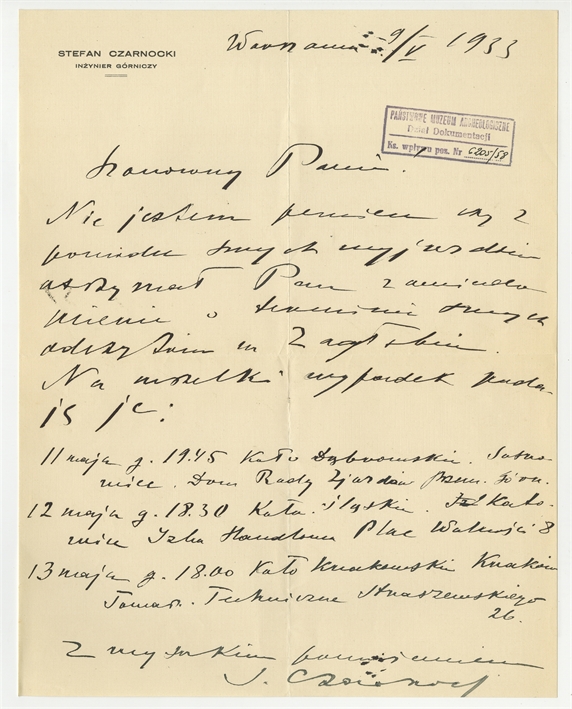 STEFAN CZARNOCKI
INŻYNIER GÓRNICZY
Warszawa 9/V 1933
PAŃSTWOWE MUZEUM ARCHEOLOGICZNE
Dział Dokumentacji
Ks. wpływu poz. Nr C205/58
Szanowny Panie.
Nie jestem pewien czy z
powodu swych wyjazdów
otrzymał Pan zawiado
mienie o terminie swych
odczytów w Zagłębiu.
Na wszelki wypadek poda-
ję je:
11 maja g. 19.45 Koło Dąbrowskie. Sosno-
wice. Dom Rady Zjazdu Przem. Górn.
12 maja g. 18.30 Koło Śląskie. Kato-
wice Izba Handlowa Plac Wolności 8
13 maja g. 18.00 Koło Krakowskie Kraków
Towarz. Techniczne Straszewskiego
26.
Z wysokim poważaniem
S. Czarnocki